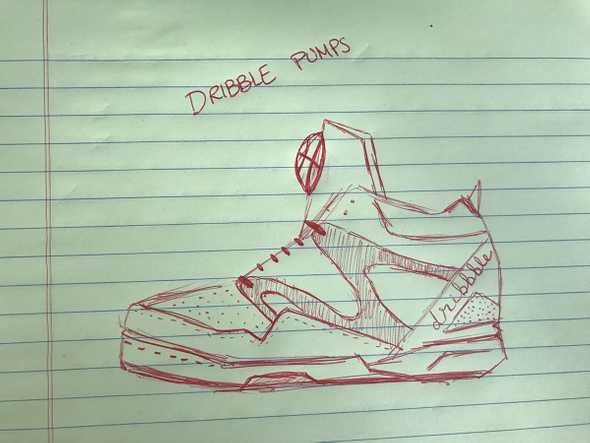 DRIBBLE PUMPS
dribbble